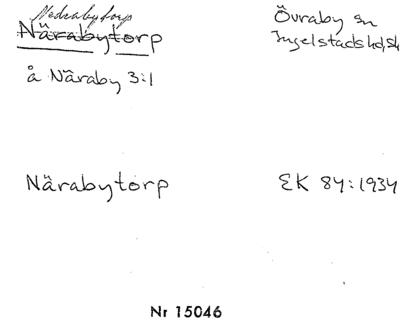 Nedrabytorp
Närabytorp
Övraby sn
Ingelstads hd, Sk
å Näraby 3:1
Närabytorp
EK 84:1934
Nr 15046